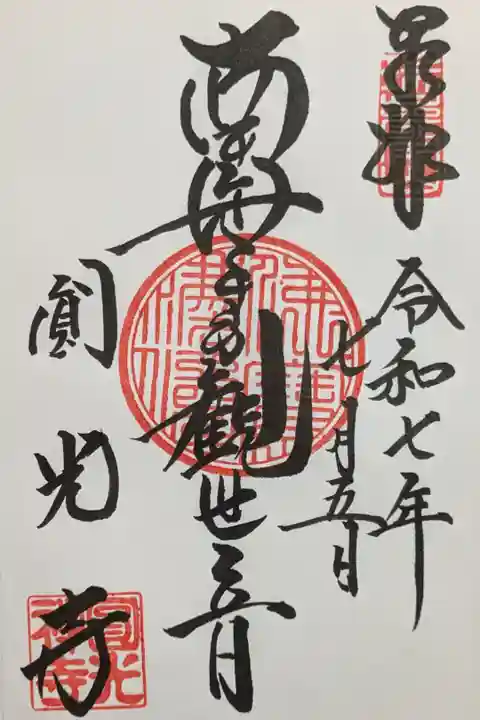 令和七年
七月五日
南無千手觀世音
圓光寺
圓光
禪寺